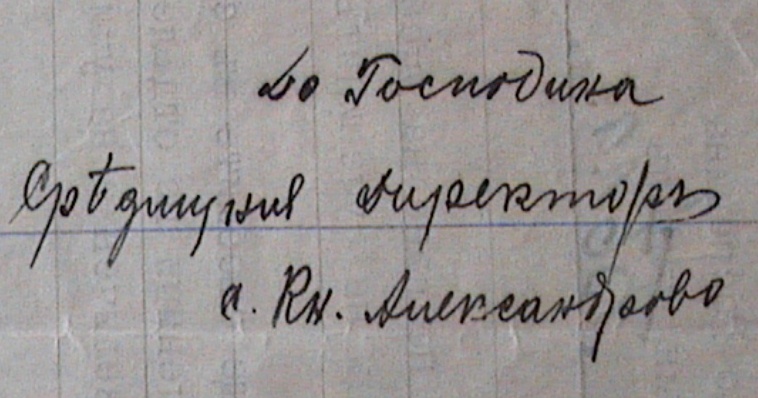 До Господина
Срѣдищния Директоръ
с. Кн. Александрово